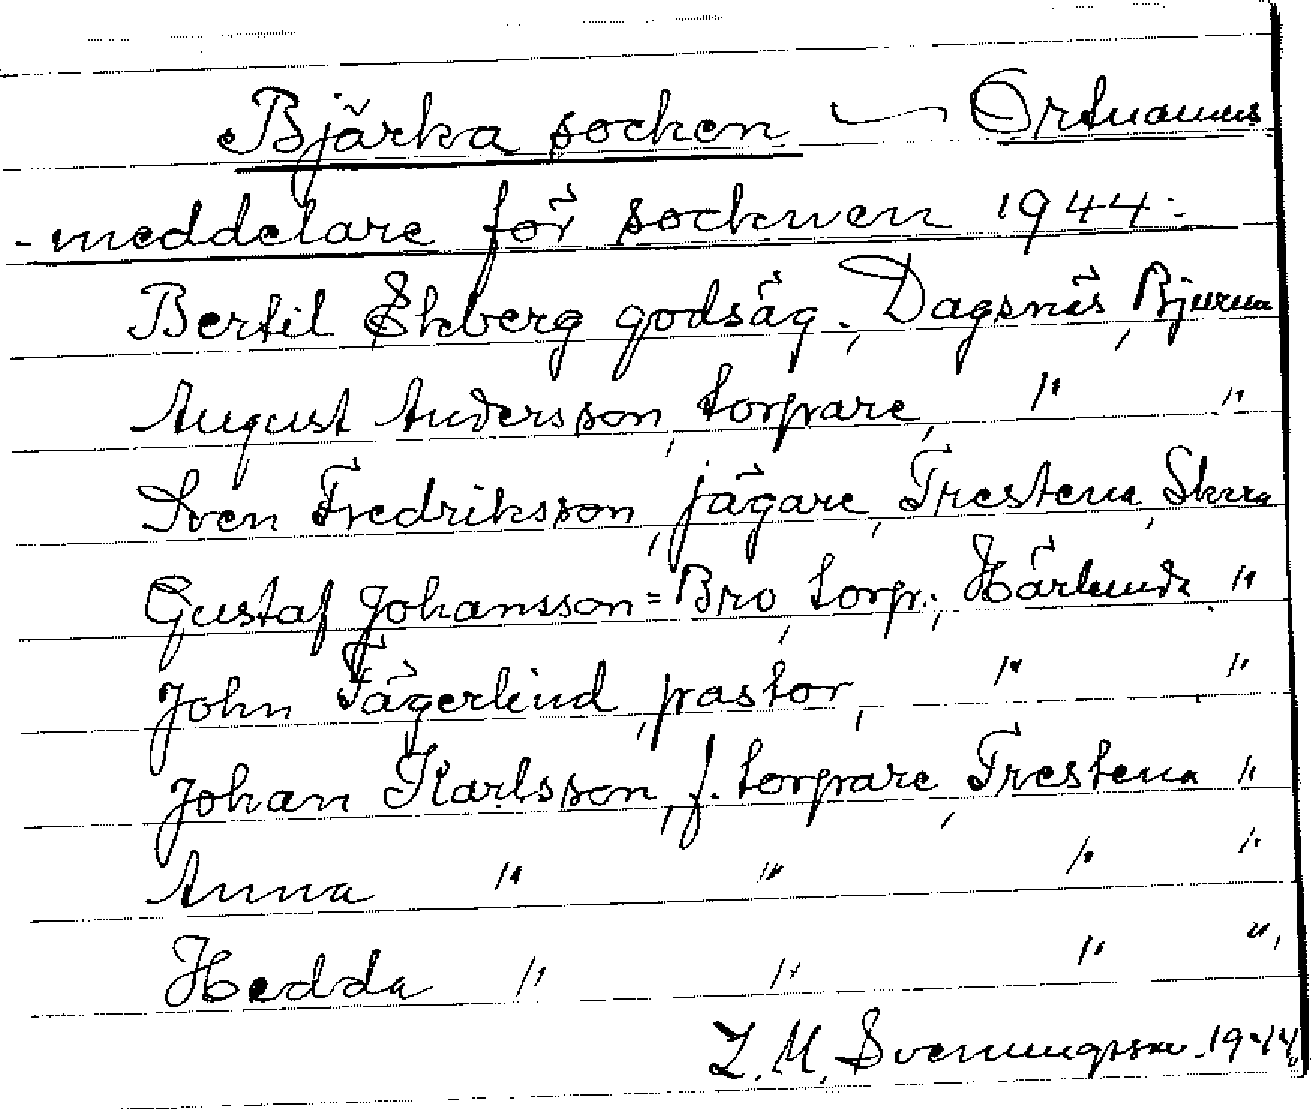 Bjärka socken — Ortnamns
-meddelare för socknen 1944:
Bertil Ekberg godsäg., Dagsnäs, Bjurum
August Andersson, torpare, " "
Sven Fredriksson, jägare, Trestena, Skara
Gustaf Johansson=Bro, torp., Härlunda "
John Fägerlind, pastor, " "
Johan Karlsson, f. torpare, Trestena "
Anna " " " "
Hedda " " " ".
Z. M. Svenungsson. 1944.